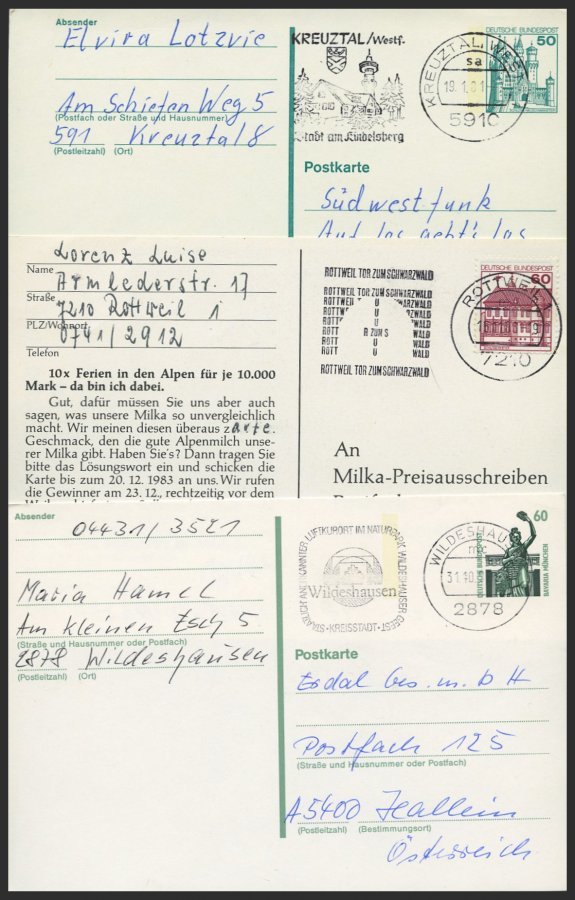 Absender
Elvira Lotzvie
Am Schiefen Weg 5
(Postfach oder Straße und Hausnummer)
591 Kreuztal 8
(Postleitzahl) (Ort)
KREUZTAL/Westf.
Stadt am Kindelsberg
KREUZTAL, WESTF
sa
19.1.81
5910
DEUTSCHE BUNDESPOST
50
Postkarte
Südwestfunk
Auf los geht's los
Lorenz Luise
Name
Armlederstr. 17
Straße
7210 Rottweil 1
PLZ/Wohnort
0741/2912
Telefon
10x Ferien in den Alpen für je 10.000
Mark – da bin ich dabei.
Gut, dafür müssen Sie uns aber auch
sagen, was unsere Milka so unvergleichlich
macht. Wir meinen diesen überaus zarte.
Geschmack, den die gute Alpenmilch unse-
rer Milka gibt. Haben Sie's? Dann tragen Sie
bitte das Lösungswort ein und schicken die
Karte bis zum 20. 12. 1983 an uns. Wir rufen
die Gewinner am 23. 12., rechtzeitig vor dem
ROTTWEIL TOR ZUM SCHWARZWALD
ROTTWEIL TOR ZUM SCHWARZWALD
ROTTWEIL TOR ZUM SCHWARZWALD
ROTTWEIL 1
7210
DEUTSCHE BUNDESPOST
60
An
Milka-Preisausschreiben
Absender
04431/3521
Maria Hamel
Am kleinen Esch 5
(Straße und Hausnummer oder Postfach)
2878 Wildeshausen
(Postleitzahl) (Ort)
STAATLICH ANERKANNTER LUFTKURORT IM NATURPARK WILDESHAUSER GEEST
KREISSTADT
Wildeshausen
WILDESHAUSEN
mc
31.10.
2878
60
DEUTSCHE BUNDESPOST
BAVARIA MÜNCHEN
Postkarte
Erdal Ges. m. b H
Postfach 125
(Straße und Hausnummer oder Postfach)
A5400 Hallein
(Postleitzahl) (Bestimmungsort)
Österreich